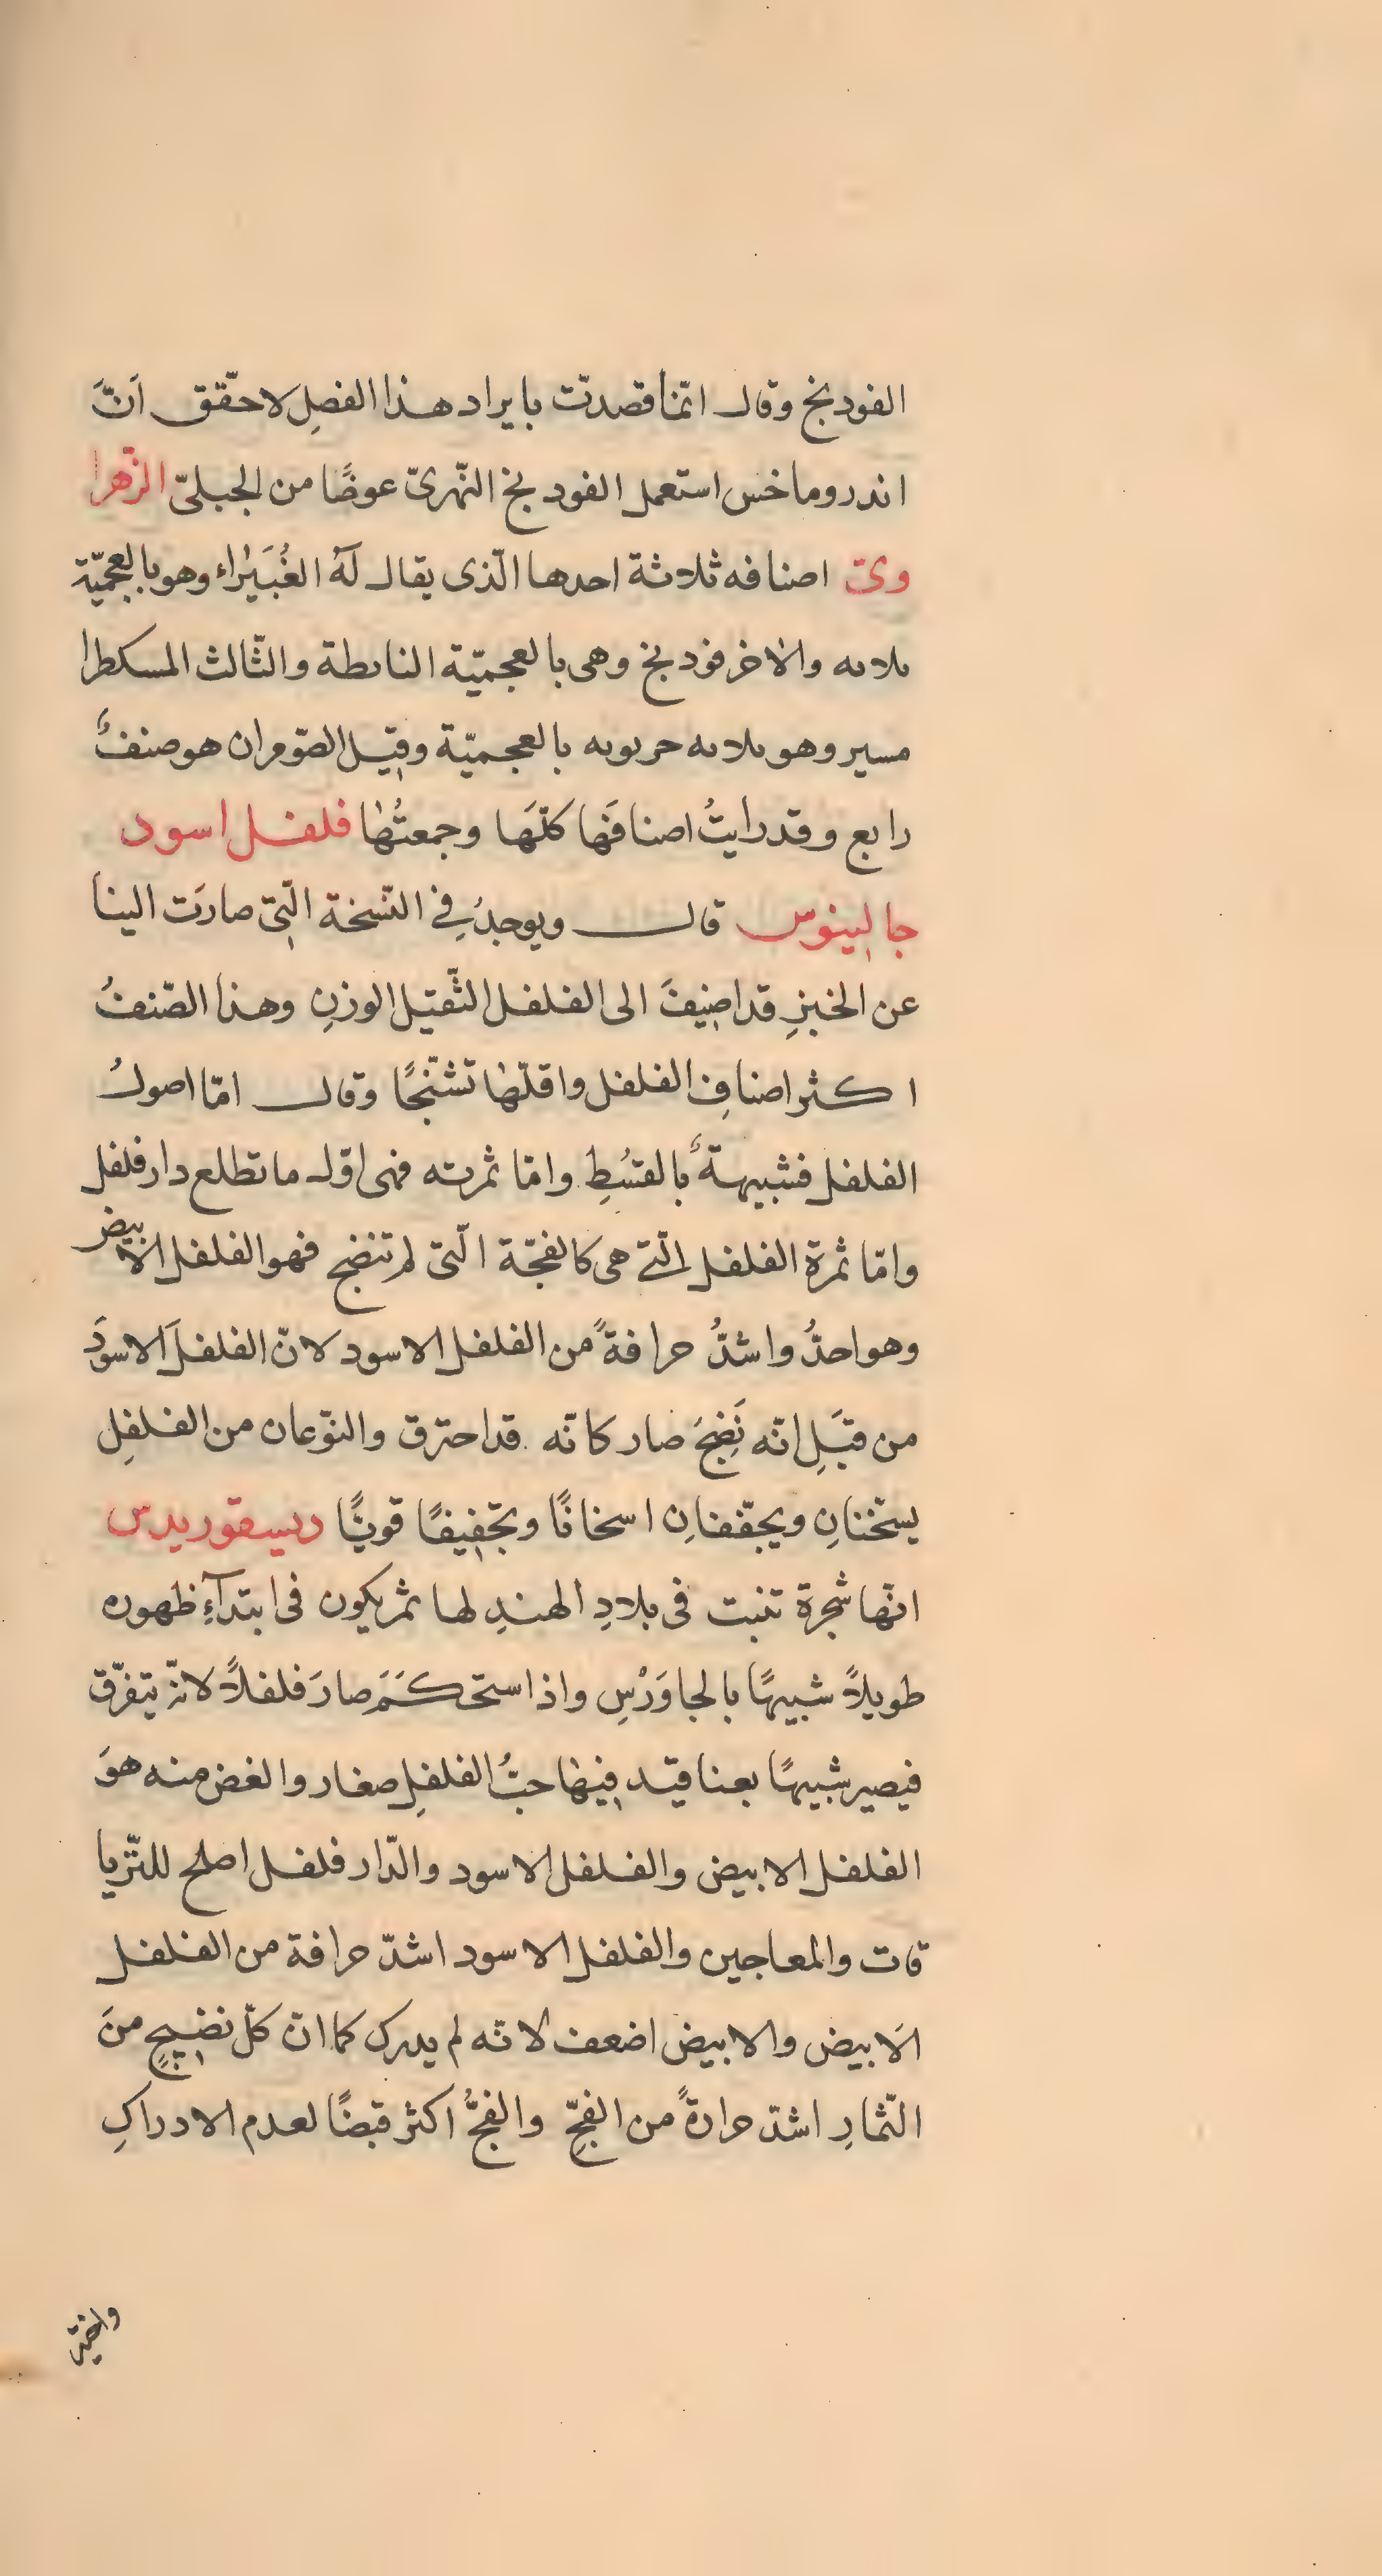 الفودنج وقال انّما قصدتّ بايراد هذا الفصلِ لاحقّق اَنَّ
اندروماخس استعمل الفودنج النّهرىّ عوضًا من الجبلىّ الزّهرا
وىّ اصنافه ثلاثة احدها الّذى يقال لَهُ الغُبَيْراء وهو بالعجميّة
ٮلاٮه والاخر فودنج وهى بالعجميّة الناٮطة والثّالث المسكطرا
مسير وهو ٮلاٮه حرٮوٮه بالعجميّة وقيل الصّومران هو صنفٌ
رابع وقد رايتُ اصنافَها كلّهَا وجمعتُها فلفل اسود
جالينوس قال ويوجدُ فِى النّسخة الّتى صارَت الينا
عن الخبزِ قد اضيفَ الى الفلفل الثّقيل الوزنِ وهذا الصّنفُ
اكثر اصنافِ الفلفل واقلّها تشنّجًا وقال امّا اصولُ
الفلفل فشبيهةٌ بالقسُطِ وامّا ثمرته فهى اوّل ما تطلع دار فلفل
وامّا ثمرة الفلفل الّتى هى كالفجّة الّتى لم تنضج فهو الفلفل الابيض
وهو احدُّ واشدُّ حرافةً من الفلفل الاسود لانّ الفلفلَ الاسودَ
من قبَلِ انّه نَضِجَ صار كانّه قد احترق والنّوعان من الفلفلِ
يسخّنانِ ويجفّفانِ اسخانًا وتجفيفًا قويًّا ديسقوريدس
انّها شجرة تنبت فى بلادِ الهندِ لها ثمر يكون فى ابتدآءِ ظهوره
طويلاً شبيهًا بالجاوَرْسِ واذا استحكَمَ صارَ فلفلاً لانّه يتفرّق
فيصير شبيهًا بعناقيد فيها حبُّ الفلفلِ صغار والغض منه هوَ
الفلفل الابيض والفلفل الاسود والدّار فلفل اصلح للتّريا
قات والمعاجين والفلفل الاسود اشدّ حرافة من الفلفل
الاَبيض والابيض اضعف لانه لم يدرك كما انّ كلّ نضيجٍ منَ
الثّمارِ اشدّ حرارةً من الفجِّ والفجُّ اكثر قبضًا لعدم الادراكِ